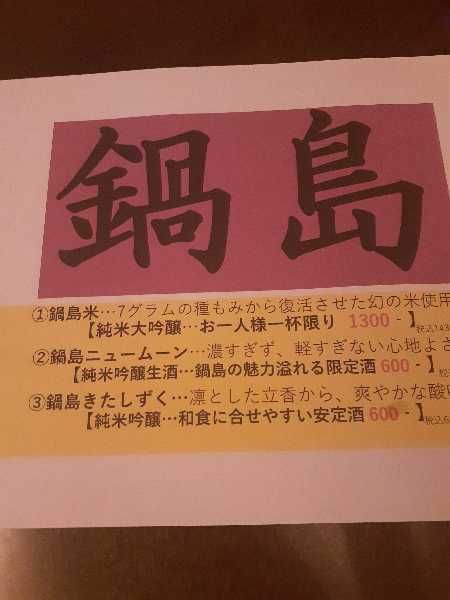 鍋島
①鍋島米…7グラムの種もみから復活させた幻の米使用
【純米大吟醸…お一人様一杯限り 1300 -】税込143
②鍋島ニュームーン…濃すぎず、軽すぎない心地よさ
【純米吟醸生酒…鍋島の魅力溢れる限定酒 600 -】税
③鍋島きたしずく…凛とした立香から、爽やかな酸
【純米吟醸…和食に合せやすい安定酒 600 -】税込6